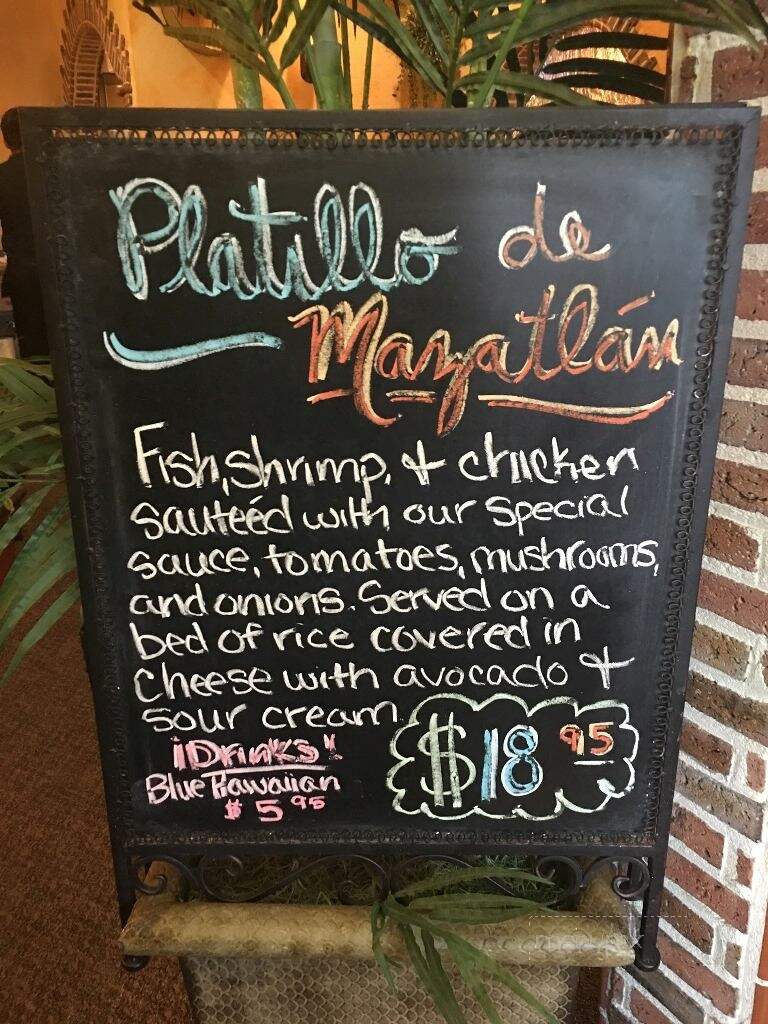 Platillo de
Mazatlán
Fish, shrimp, + chicken
sauteéd with our special
sauce, tomatoes, mushrooms,
and onions. Served on a
bed of rice covered in
cheese with avocado +
sour cream.
¡Drinks!
Blue Hawaiian
$5.95
$18.95